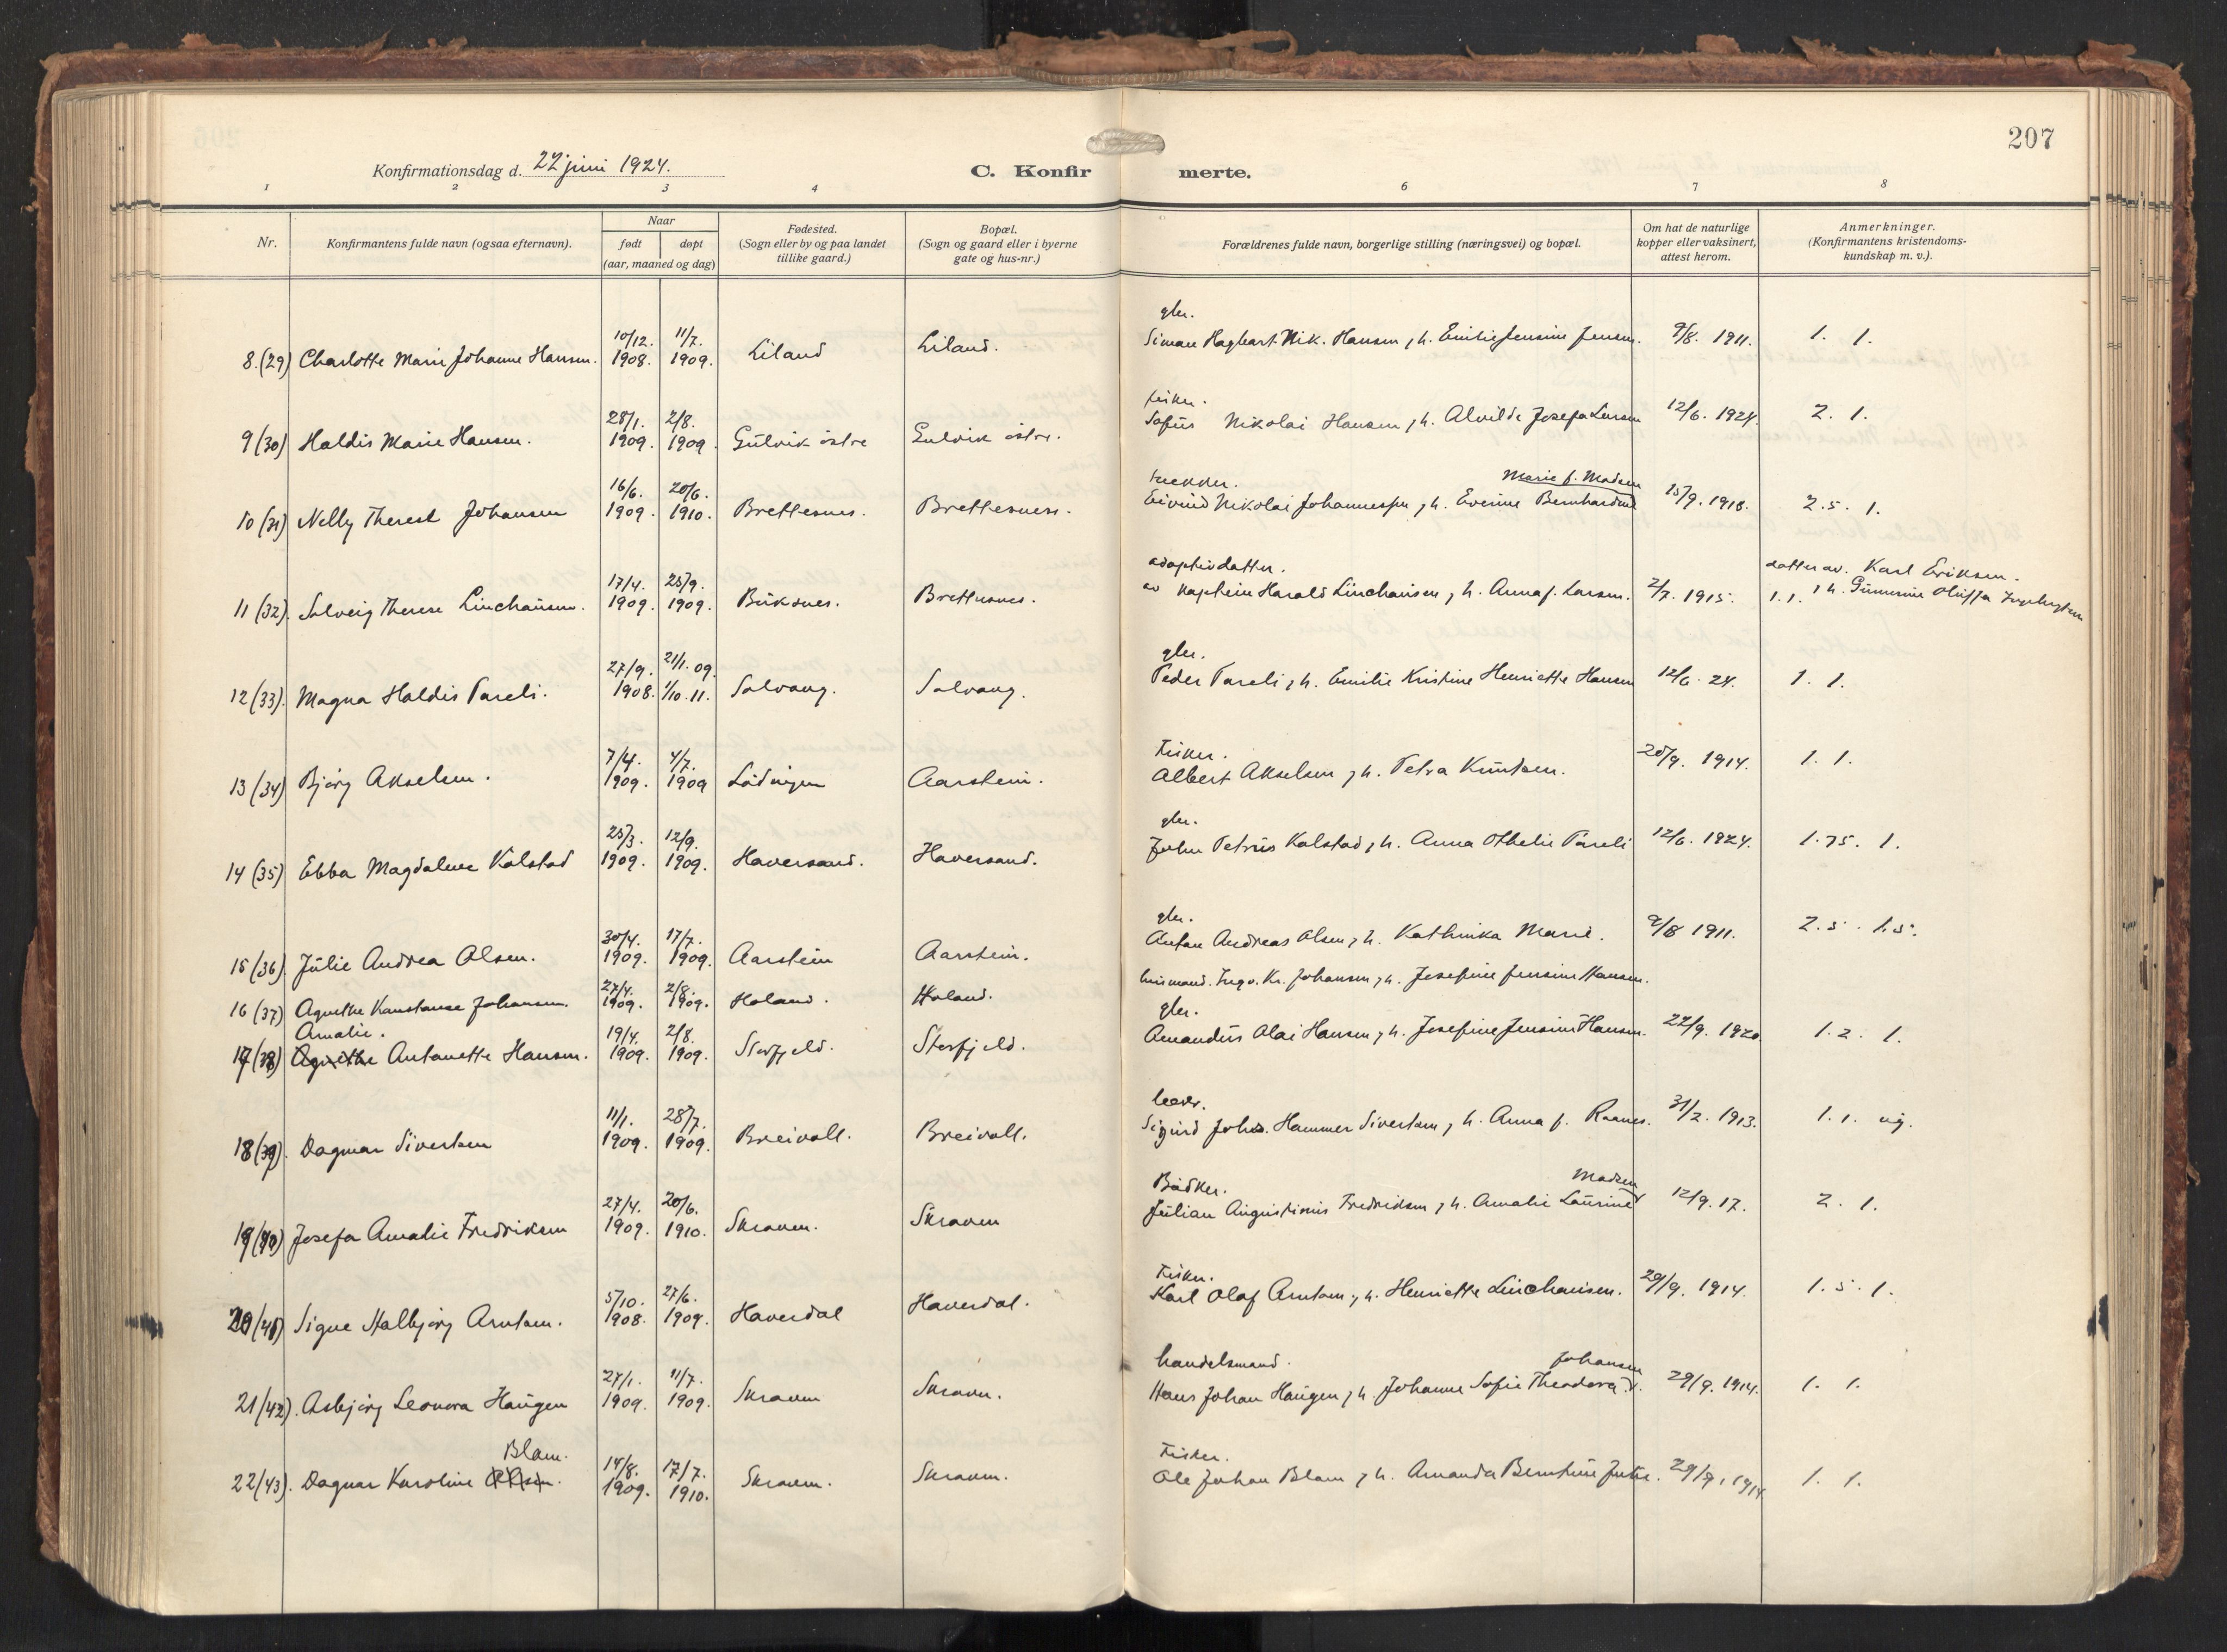 207
Konfirmationsdag d. 22 juni 1924. C. Konfir merte.
1 2 3 4 6 7 8
Nr. Konfirmantens fulde navn (ogsaa efternavn). Naar født døpt (aar, maaned og dag) Fødested. (Sogn eller by og paa landet tillike gaard.) Bopæl. (Sogn og gaard eller i byerne gate og hus-nr.) Forældrenes fulde navn, borgerlige stilling (næringsvei) og bopæl. Om hat de naturlige kopper eller vaksinert, attest herom. Anmerkninger. (Konfirmantens kristendomskundskap m. v.).
gbr.
10/12. 11/7.
8.(29) Charlotte Marie Johanne Hansen. 1908. 1909. Liland Liland. Simon Hagbart Nik. Hansen, h. Emilie Jensine Jensen. 9/8. 1911. 1. 1.
fisker.
28/1. 2/8.
9 (30) Haldis Marie Hansen. 1909. 1909. Gulvik östre Gulvik östre. Sofus Nikolai Hansen, h. Alvilde Josefa Larsen 12/6. 1924. 2. 1.
16/6. 20/6. Marie f. Madsen
10 (31) Nelly Therest Johansen 1909. 1910. Brettesnes. Brettesnes. Eivind Nikolai Johannessen, h. Everine Bernhardine 15/9. 1918. 2.5. 1.
adoptivdatter. datter av. Karl Eriksen.
17/4. 25/9.
11 (32). Solveig Therese Linchausen. 1909. 1909. Buksnes. Brettesnes. av Kaptein Harald Linchausen, h. Anna f. Larsen. 2/7. 1915. 1.1.
gbr.
27/9. 21/1. 09.
12 (33). Magna Haldis Pareli. 1908. 1/10. 11. Solvang. Solvang. Peder Pareli, h. Emilie Kristine Henriette Hansen 12/6. 24. 1. 1.
Fisker.
7/4. 4/7.
13 (34) Bjørg Akselsen. 1909. 1909 Lödingen Aarstein. Albert Akselsen, h. Petra Knutsen. 25/9. 1914. 1. 1.
gbr.
25/3. 12/9.
14 (35) Ebba Magdalene Kalstad 1909. 1909. Haversand. Haversand. John Petrus Kalstad, h. Anna Othelie Pareli 12/6. 1924. 1.75. 1.
gbr.
30/4. 17/7.
15 (36). Julie Andrea Olsen. 1909. 1909. Aarstein Aarstein. Anton Andreas Olsen, h. Kathinka Marie. 9/8 1911. 2.5. 1.5.
27/4. 2/8.
16 (37) Agnethe Konstanse Johansen. 1909. 1909. Holand. Holand. husmand. Ingv. Kr. Johansen, h. Josefine Jensine Hansen.
Amalie. 19/4. 2/8. gbr.
17 (38) Agnethe Antonette Hansen. 1909. 1909. Storfjeld. Storfjeld. Amandus Olai Hansen, h. Josefine Jensine Hansen. 22/9. 1920. 1.2. 1.
11/1. 28/7.
18 (39). Dagmar Sivertsen 1909. 1909. Breivoll. Breivoll. Sigurd Johs. Hammer Sivertsen, h. Anna f. Raanes. 31/2. 1913. 1.1. ug.
Bødker. Madsen
27/4. 20/6.
19 (40) Josefa Amalie Fredriksen 1909. 1910. Skraaven. Skraaven Julian Augustinius Fredriksen, h. Amalie Laurine 12/9. 17. 2. 1.
Fisker.
5/10. 27/6.
20 (41) Signe Halbjørg Arntsen. 1908. 1909. Haverdal Haverdal. Karl Olaf Arntsen, h. Henriette Linchausen. 29/9. 1914. 1.5. 1.
handelsmand. Johansen
27/1. 11/7.
21 (42). Asbjørg Leonora Haugen 1909. 1909. Skraaven Skraaven. Hans Johan Haugen, h. Johanne Sofie Theodora 29/9. 1914. 1. 1.
Blom. Fisker.
14/8. 17/7.
22 (43). Dagmar Karoline 1909. 1910. Skraaven. Skraaven. Ole Johan Blom, h. Amanda Berntine 29/9. 1914. 1. 1.